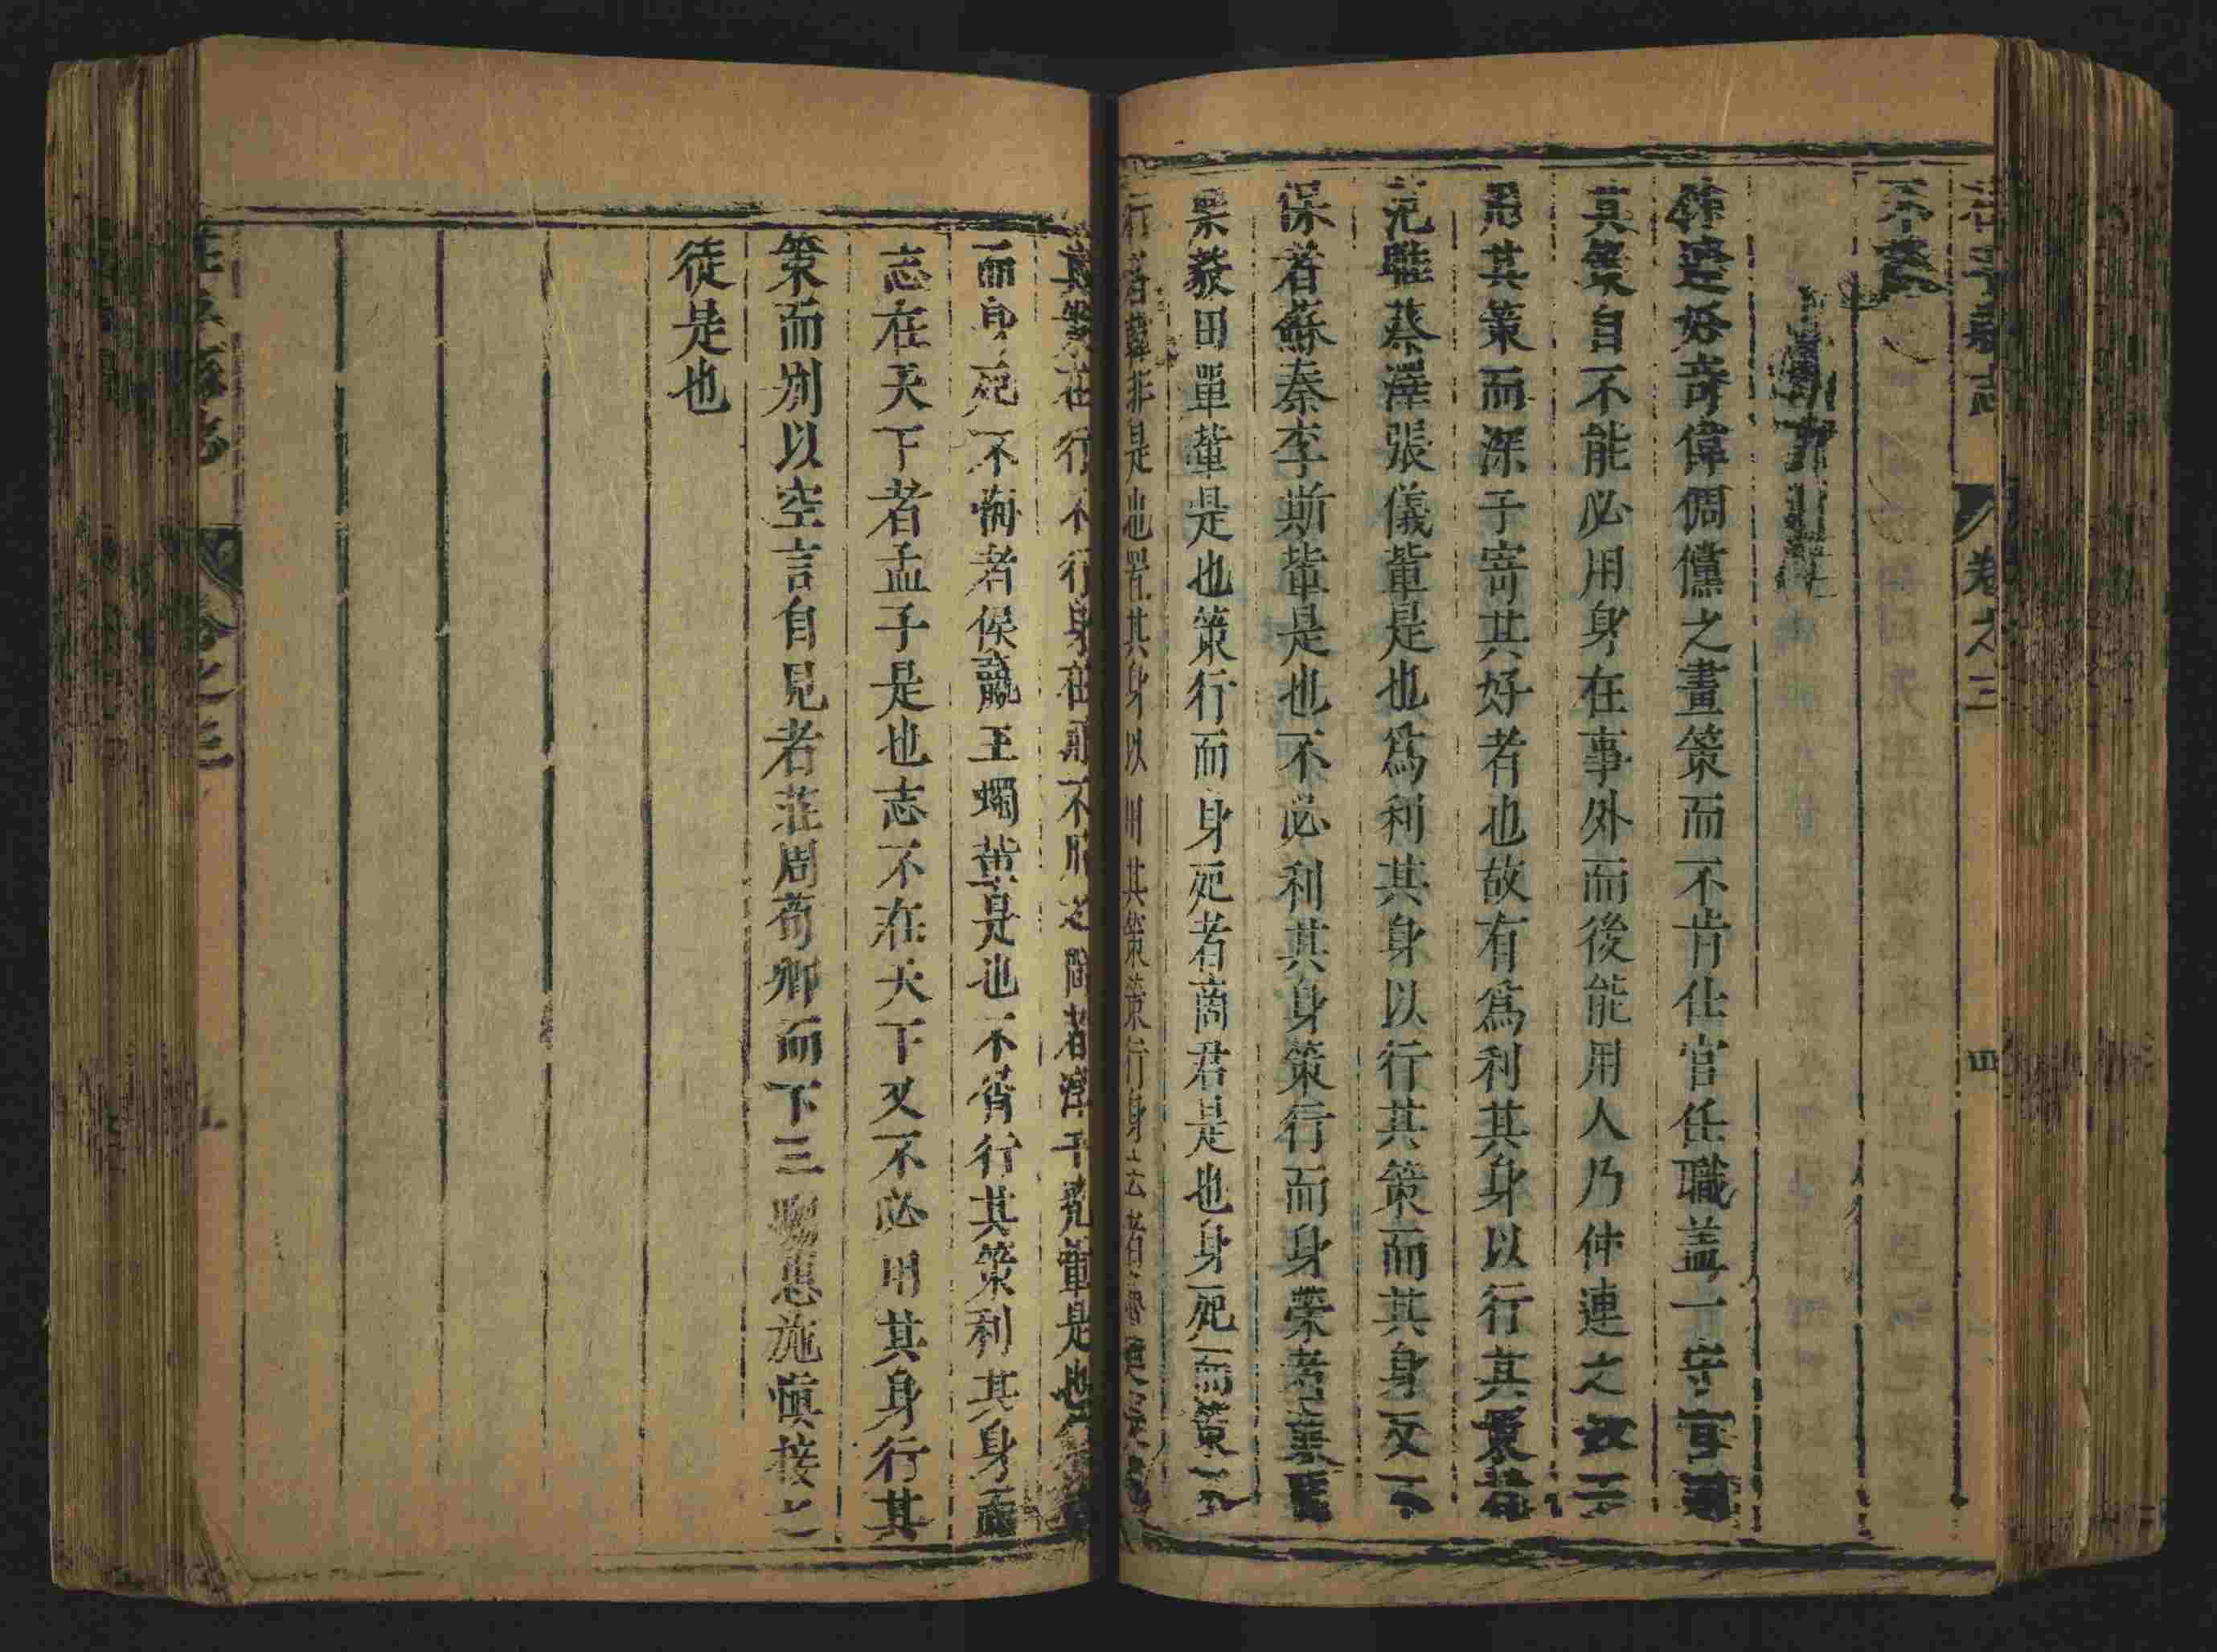 卷之三
四
不
魯
仲連好奇偉倜儻之畫策而不肯仕官任職蓋一守官
其策自不能必用身在事外而後能用人乃仲連之
用其策而深于寄其好者也故有爲利其身以行其
范雎蔡澤張儀輩是也爲利其身以行其策而其身又不
保者蘇秦李斯輩是也不必利其身策行而身榮者
樂毅田單輩是也策行而身死者商君是也身死而策不
行者韓非是也置其身以用其策策行身去者魯連
其策在行不行身在之間者淳于髡輩是也
而身死不悔者侯嬴王蠋輩是也不肯行其策利其身而
志在天下者孟子是也志不在天下又不必用其身行其
策而別以空言自見者莊周荀卿而下三騶惠施慎接之
徒是也
卷之三